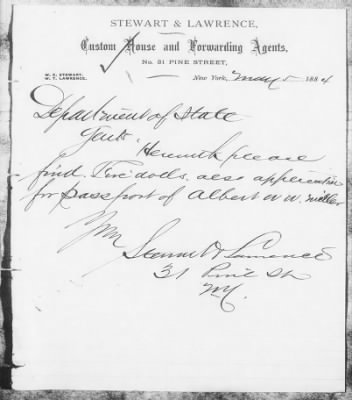 STEWART & LAWRENCE,
Custom House and Forwarding Agents,
No. 31 PINE STREET,
W. S. STEWART.
W. T. LAWRENCE.
New York, May 5 1884
Department of State
Gents Herewith please
find Five dolls. also application
for passport of Albert W. Miller
Stewart & Lawrence
31 Pine St
NY.